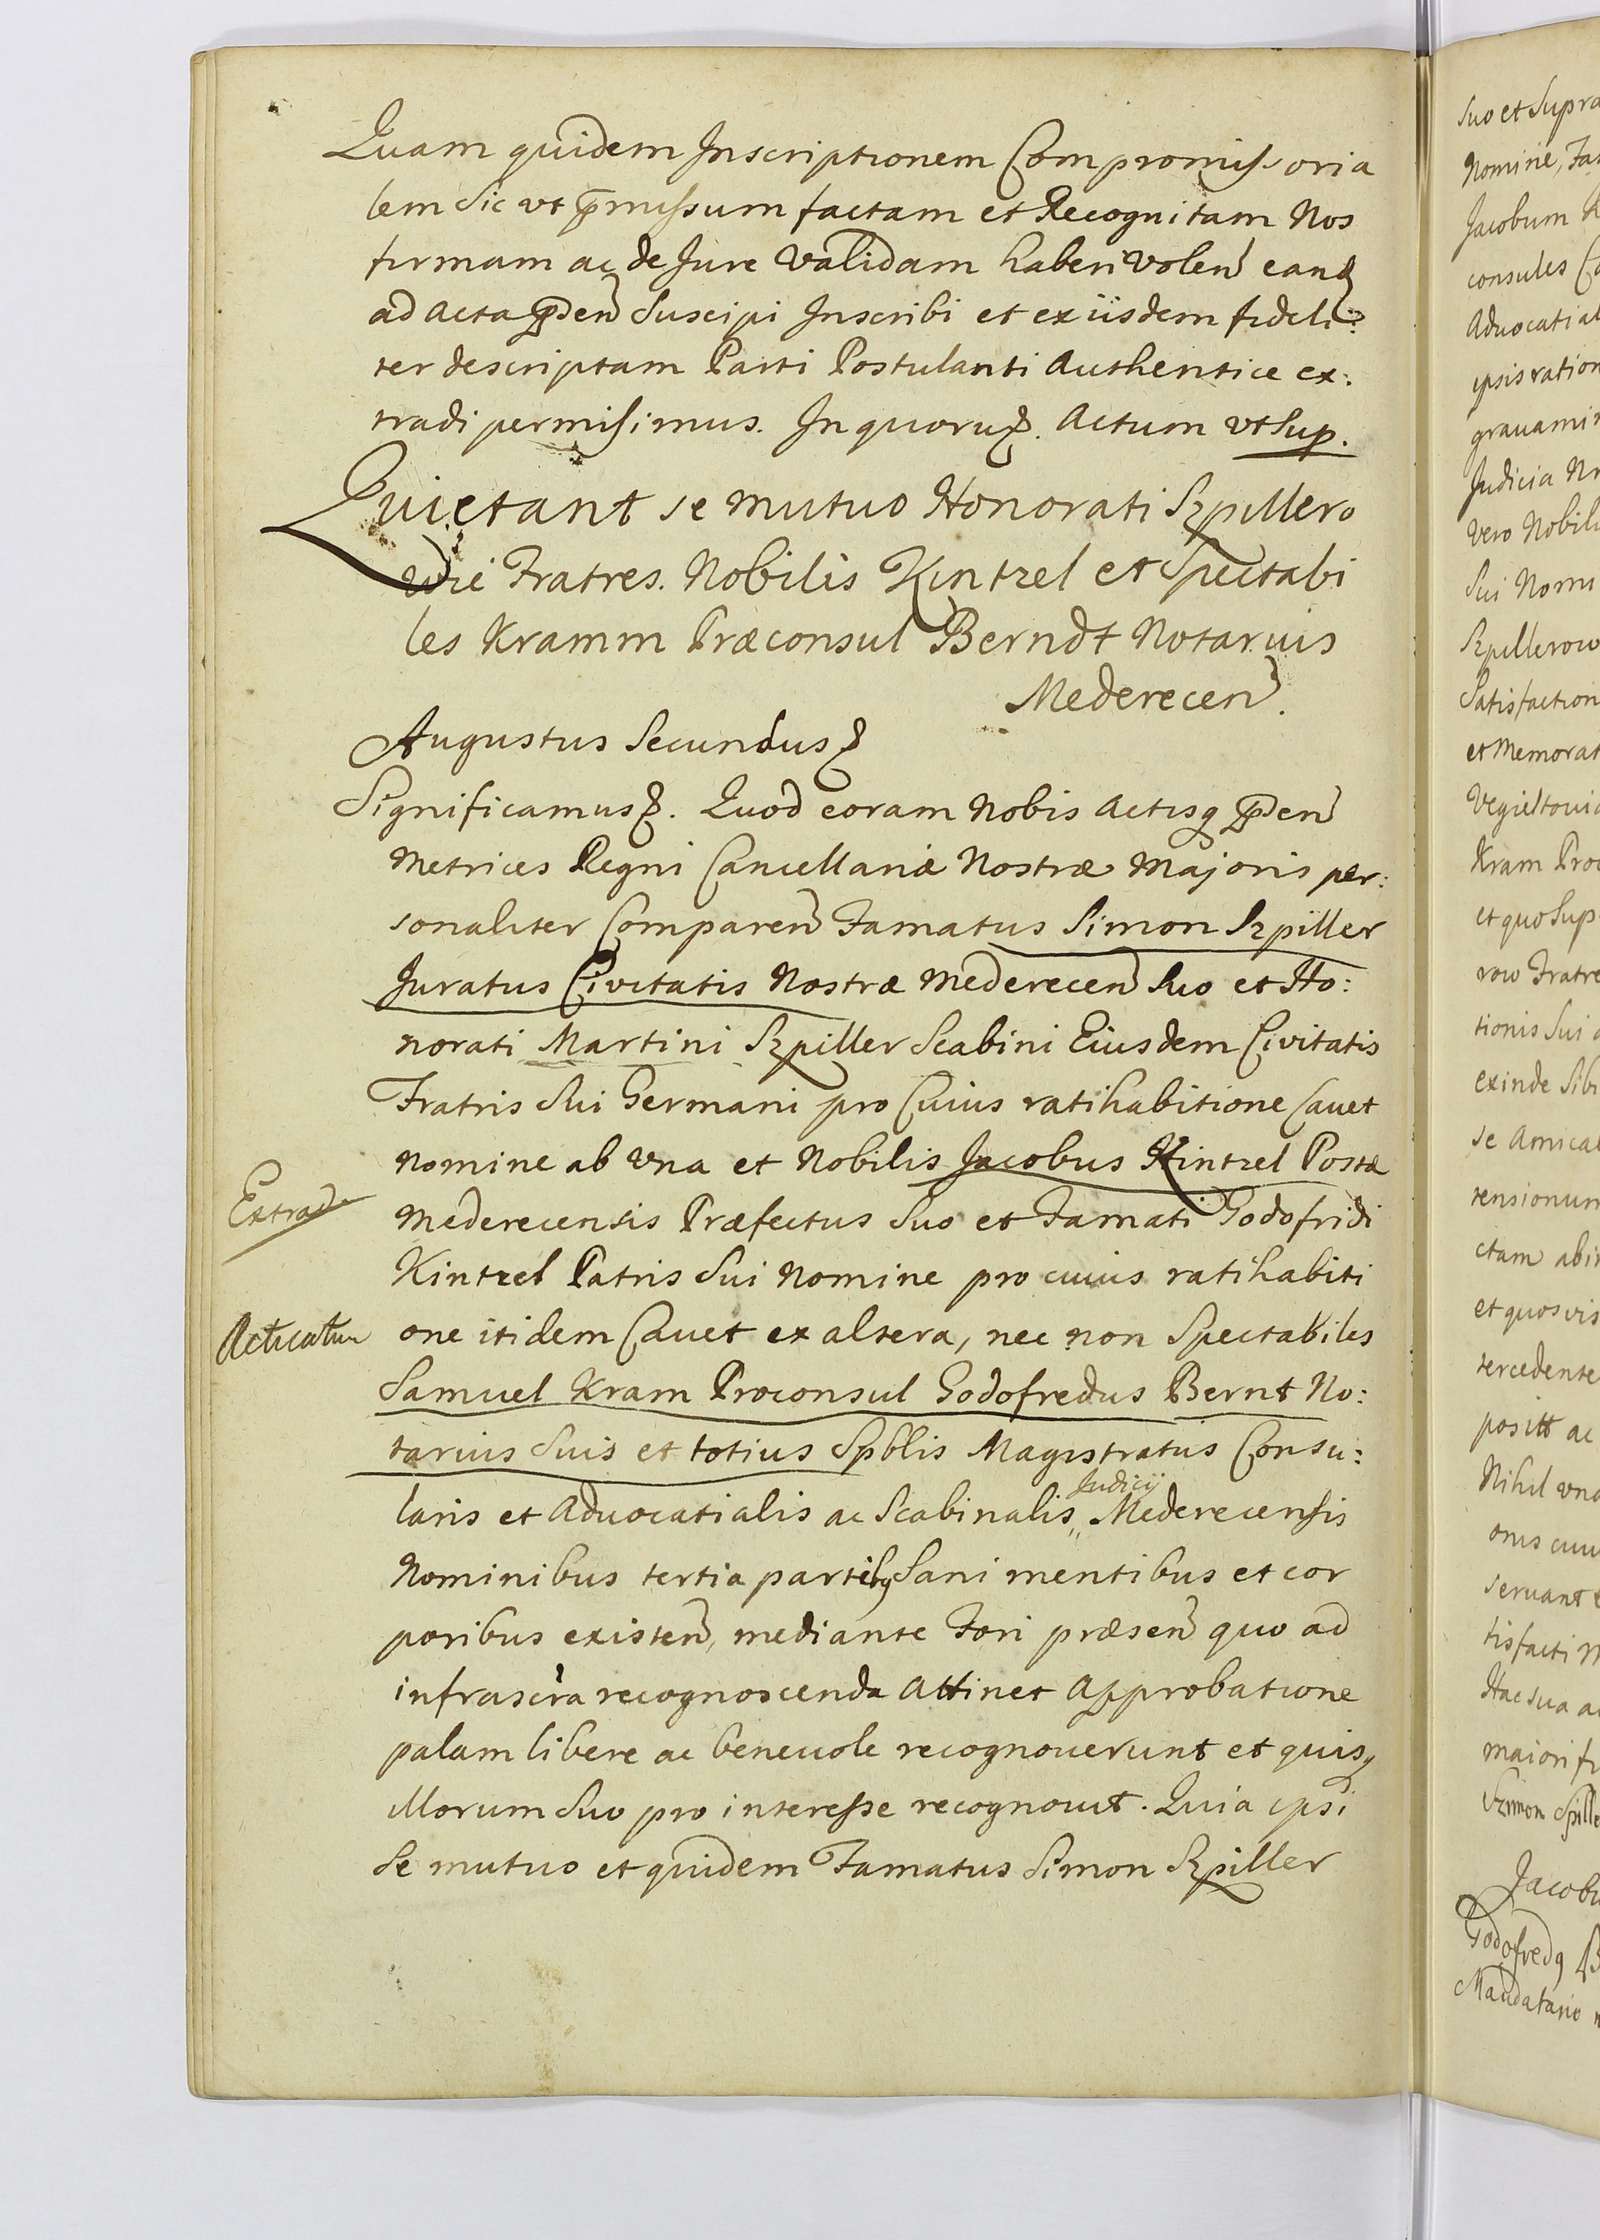 Quam quidem Inscriptionem Compromissoria
lem sic vt pmissum factam et Recognitam Nos
firmam ac de Jure validam haberi volen eand
ad acta pden Suscipi Inscribi et ex iisdem fideli:
ter descriptam Parti Postulanti Authentice ex:
tradi permisimus. In quoru. Actum vt Sup.
Quietant se mutuo Honorati Szpillero
wie Fratres. Nobilis Kintzel et Spectabi
les Kramm Præconsul Berndt Notarius
Mederecen.
Augustus Secundus
Significamus. Quod coram Nobis Actisq pden
Metrices Regni Cancellariæ Nostræ Majoris per:
sonaliter Comparen Famatus Simon Szpiller
Juratus Civitatis Nostræ Mederecen Suo et Ho:
norati Martini Szpiller Scabini Eiusdem Civitatis
Fratris Sui Germani pro Cuius ratihabitione Cauet
nomine ab vna et Nobilis Jacobus Kintzel Postæ
Extrad
Mederecensis Præfectus Suo et Famati Godofridi
Kintzel Patris Sui Nomine pro cuius ratihabiti
Acticatur
one itidem Cauet ex altera, nec non Spectabiles
Samuel Kram Proconsul Godofredus Bernt No:
tarius Suis et totius Spblis Magistratus Consu:
Judicij
laris et Aduocatialis ac Scabinalis Mederecensis
Nominibus tertia partibq Sani mentibus et cor
poribus existen, mediante Fori præsen quo ad
infrascra recognoscenda Attinet Approbatione
palam libere ac beneuole recognouerunt et quisq
illorum Suo pro interesse recognouit. Quia ipsi
Se mutuo et quidem Famatus Simon Szpiller
suo et Supra
Nomine,
Jacobum
consules
Aduocatial
ipsis ration
grauamin
Judicia
vero Nobili
Sui Nomi
Szpillerow
Satisfaction
et Memorat
Kram Proc
et quo Sup
row Fratre
tionis Sui
exinde Sibi
se Amical
tensionum
ctam abin
et quosvis
tercedente
positt ac
Nihil vna
onis cuiu
seruant
tisfacti
Hac sua
maiori
Szimon Spille
Jacobu
Godofredq
Mandatario